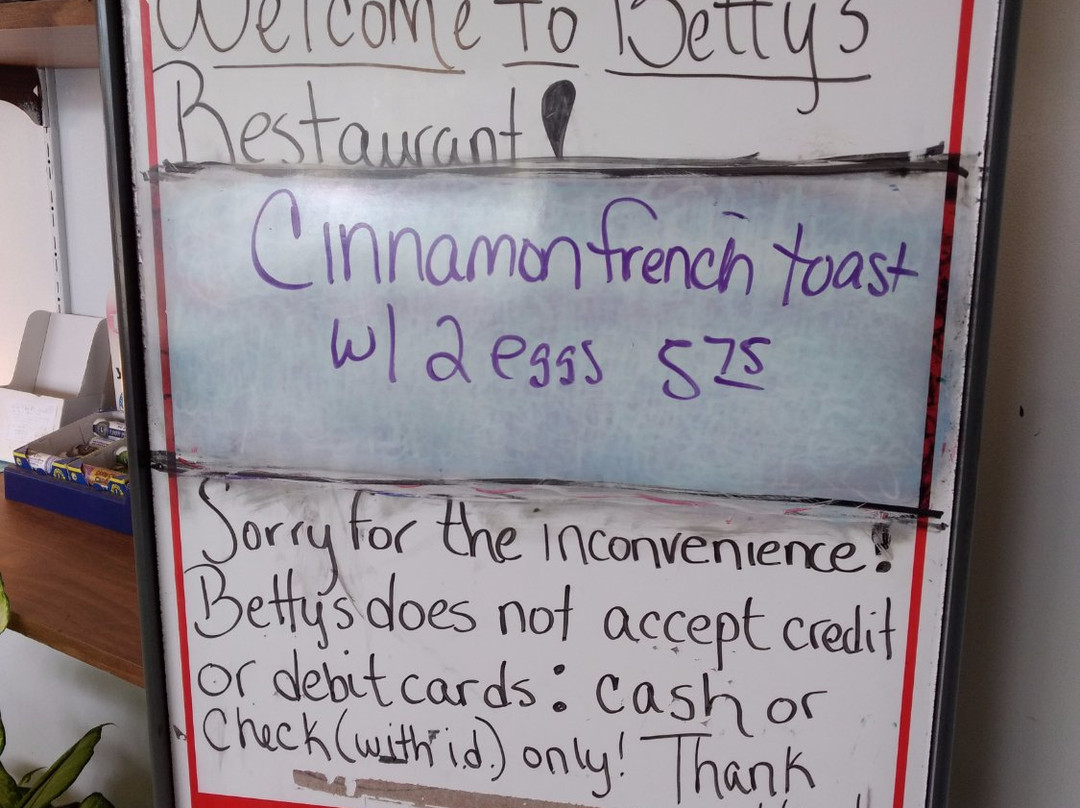 Welcome to Betty's
Restaurant!
Cinnamon french toast
w/ 2 eggs 5 75
Sorry for the inconvenience!
Betty's does not accept credit
or debit cards: cash or
Check (with i.d.) only! Thank